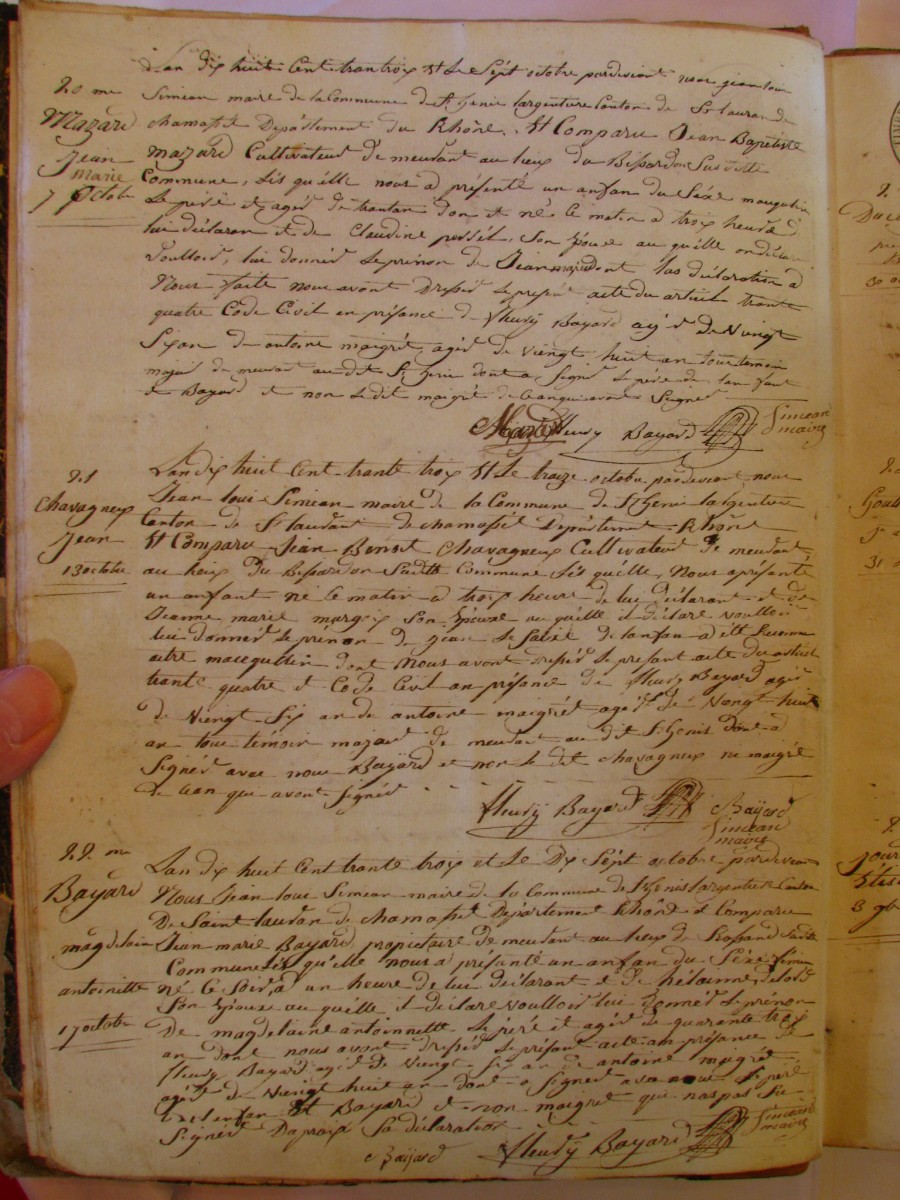 L'an dix huit Cent trantroix Et Le Sept octobre pardevant nous jean loui
20 me
Mazard
Jean
marie
7 Octobre
Simean maire de la Commune de St Genie largenture Canton de St lauran de
chamosset Département du Rhône Et Comparu Jean Baptiste
mazard Cultivateur de meurant au lieux du Bissardon Susditte
Commune, lès qu'elle nous a présenté un anfan du Séxe
Le peré et agér de trantan don et né le matin a troix heure d
lui déclaran et de Claudine Son Epouse au qu'elle
voulloir lui donnér Le prénon de Jean dont las déclaration a
Nous faite nous avont Dressér Le present acte du article trante
quatre Code Civil en présance de Fleury Bayard agér de Vingt
Six an de antoine maigrét agér de viengt huit an tous temoin
majeur de meurant au dit St Genie dont a Signé Le péré de lanfant
et Bayard et non le dit maigrét de Canquiavons Signér
Fleury Bayard Simean
maire
21
Chavagneux
Jean
13 octobre
Lan dix huit Cent trante troix Et Le traize octobre pardevant nous
Jean loui Simean maire de la Commune de St Genie largentiere
Canton de St laurant de chamosset Département Rhône
Et Comparu Jean Benoit Chavagneux Cultivateur de meurant
au lieux du Bissardon Commune lés qu'elle, Nous a présenté
un anfant né le matin a troix heure de lui déclarant et de
Jeanne marie Son Epouse au qu'elle il déclare voulloir
lui donnér Le prénon de jean Le Séxe de lanfan a été Reconnu
aitre macquullin dont Nous avont dressér Le présant acte du artiel
trante quatre d Code Civil an présance de Fleury Bayard agér
de Viengt Six an de antoine maigrét agér de Vengt huit
an tous témoin majeur de meurant au dit St Genis dont a
Signér avec nous Bayard et non le dit chavagneux ne maigré
de can qui avont Signér
Fleury Bayard Bayard
Simean
maire
22 me
Bayard
magdelaine
antoinette
17 octobre
Lan dix huit Cent trante troix et Le Dix Sept octobre pardevan
Nous Jean loui Simean maire de la Commune de St Genis largentiere Canton
De Saint lauran de chamosset Département Rhône et Comparu
Jean marie Bayard propietaire de meurant au lieux de
Commune lès qu'elle nous a présenté un anfan du Séxe
né Ce Soir, a un heure de lui déclarant et de
Son Epouze au qu'elle il déclare voulloir lui donnér Le prénon
De magdelaine antoinnette Le péré et agér de quarante troix
an dont nous avont dressér Le présant acte an présance de
Fleury Bayard agér de Viengt Six an de antoine maigrét
agér de Viengt huit an dont a Signér avec nous Le péré
de lenfan Et Bayard et non maigret qui
Signér Daprais Sa déclaration Simean
maire
Bayard Fleury Bayard
30
31
3 9b